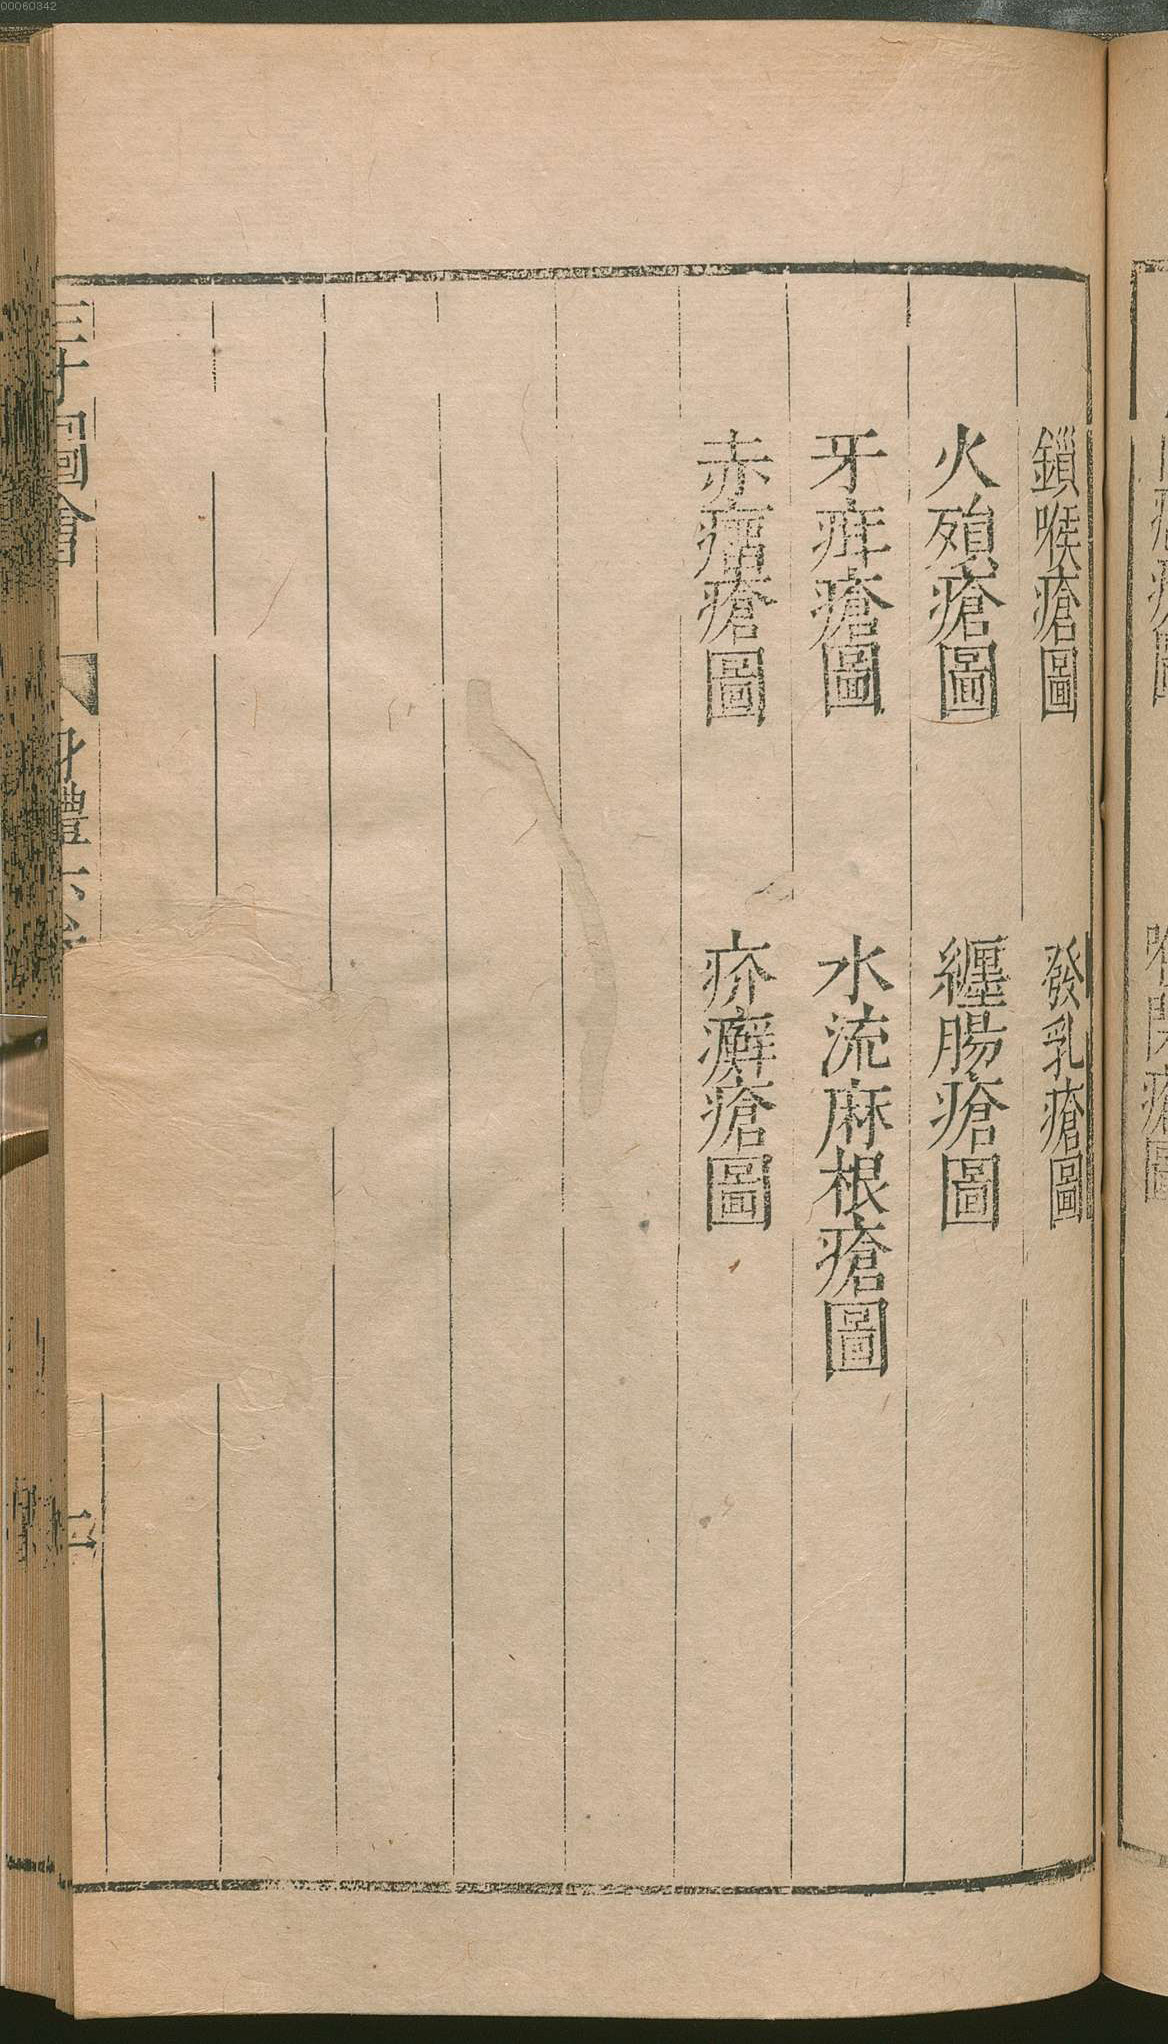 00060342
鎻喉瘡圖
發乳瘡圖
火㱩瘡圖
纏腸瘡圖
牙疰瘡圖
水流麻根瘡圖
赤㾦瘡圖
疥癬瘡圖
三才圖會
身體六卷